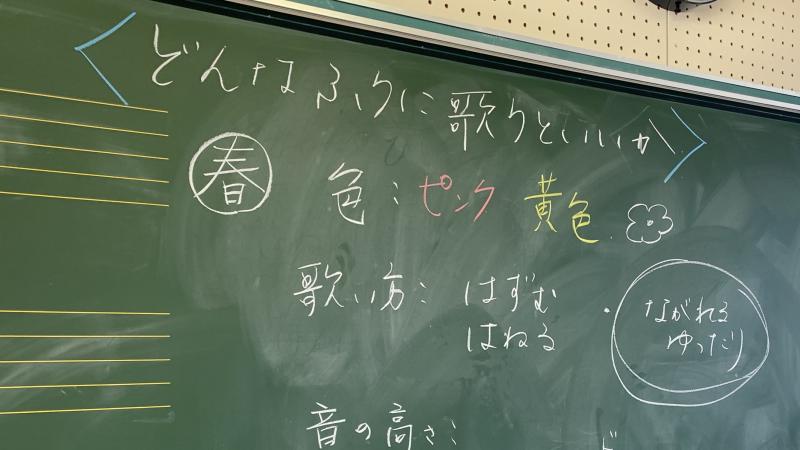 〈どんなふうに歌うといいか〉
春 色：ピンク 黄色
歌い方：はずむ
はねる
・ながれる
ゆったり
音の高さ：